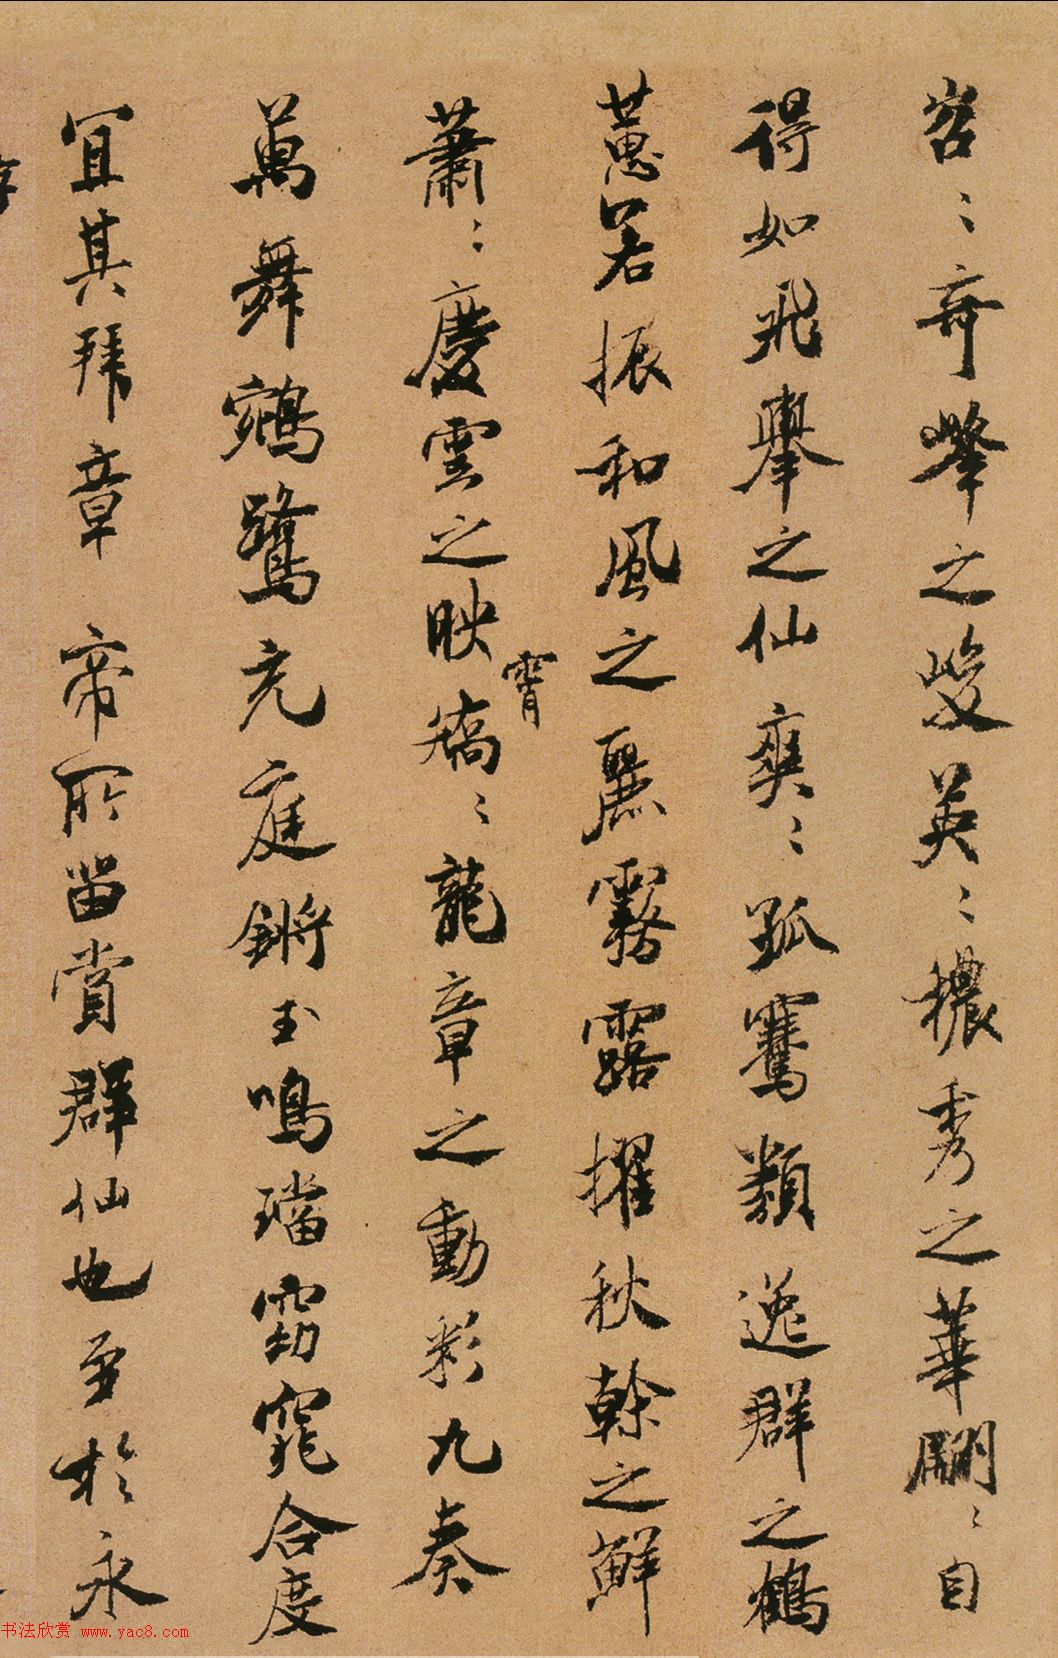 岧〻奇峯之峻英〻穠秀之華翩〻自
得如飛舉之仙爽〻孤騫類逸群之鶴
蕙若振和風之麗霧露擢秋幹之鮮
蕭〻慶雲之映霄矯〻龍章之動彩九奏
萬舞鵷鷺充庭鏘玉鳴璫窈窕合度
宜其拜章帝所留賞群仙也至於永
书法欣赏 www.yac8.com